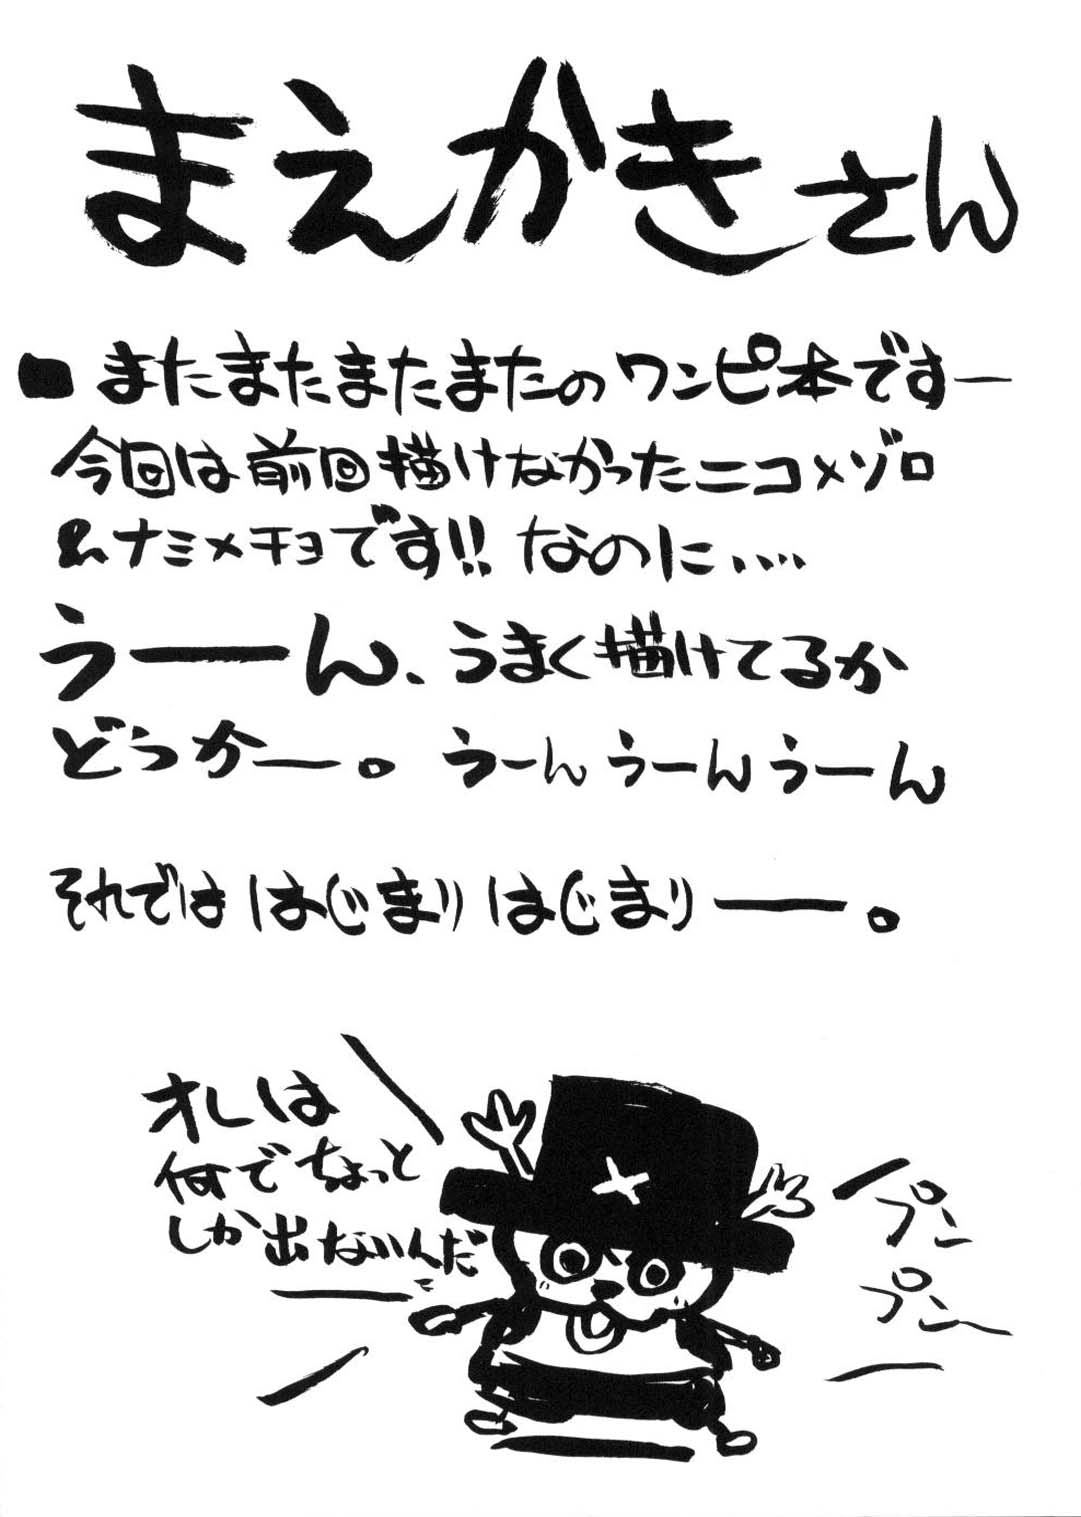 まえかきさん
■またまたまたまたのワンピ本ですー
今回は前回描けなかったニコ×ゾロ
&ナミ×チョです!!なのに....
うーん、うまく描けてるか
どうかー。うーんうーんうーん
それでははじまりはじまりー。
オレは
何でちょっと
しか出ないんだ
プン
プンー